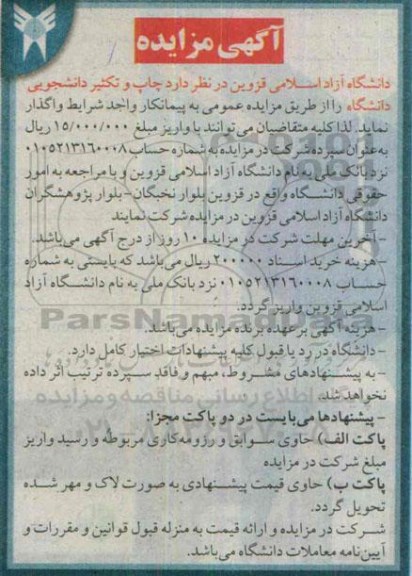 آگهی مزایده
دانشگاه آزاد اسلامی قزوین در نظر دارد چاپ و تکثیر دانشجویی
دانشگاه را از طریق مزایده عمومی به پیمانکار واجد شرایط واگذار
نماید. لذا کلیه متقاضیان می توانند با واریز مبلغ ۱۵/۰۰۰/۰۰۰ ریال
به عنوان سپرده شرکت در مزایده به شماره حساب ۰۱۰۵۲۱۳۱۶۰۰۰۸
نزد بانک ملی به نام دانشگاه آزاد اسلامی قزوین و با مراجعه به امور
حقوقی دانشگاه واقع در قزوین بلوار نخبگان - بلوار پژوهشگران
دانشگاه آزاد اسلامی قزوین در مزایده شرکت نمایند
- آخرین مهلت شرکت در مزایده ۱۰ روز از درج آگهی می باشد.
- هزینه خرید اسناد ۲۰۰۰۰۰ ریال می باشد که بایستی به شماره
حساب ۰۱۰۵۲۱۳۱۶۰۰۰۸ نزد بانک ملی به نام دانشگاه آزاد
اسلامی قزوین واریز گردد.
- هزینه آگهی بر عهده برنده مزایده می باشد.
- دانشگاه در رد یا قبول کلیه پیشنهادات اختیار کامل دارد.
- به پیشنهادهای مشروط، مبهم و فاقد سپرده ترتیب اثر داده
نخواهد شد.
- پیشنهادها می بایست در دو پاکت مجزا:
پاکت الف) حاوی سوابق و رزومه کاری مربوطه و رسید واریز
مبلغ شرکت در مزایده
پاکت ب) حاوی قیمت پیشنهادی به صورت لاک و مهر شده
تحویل گردد.
شرکت در مزایده و ارائه قیمت به منزله قبول قوانین و مقررات و
آیین نامه معاملات دانشگاه می باشد.
ParsNamadData